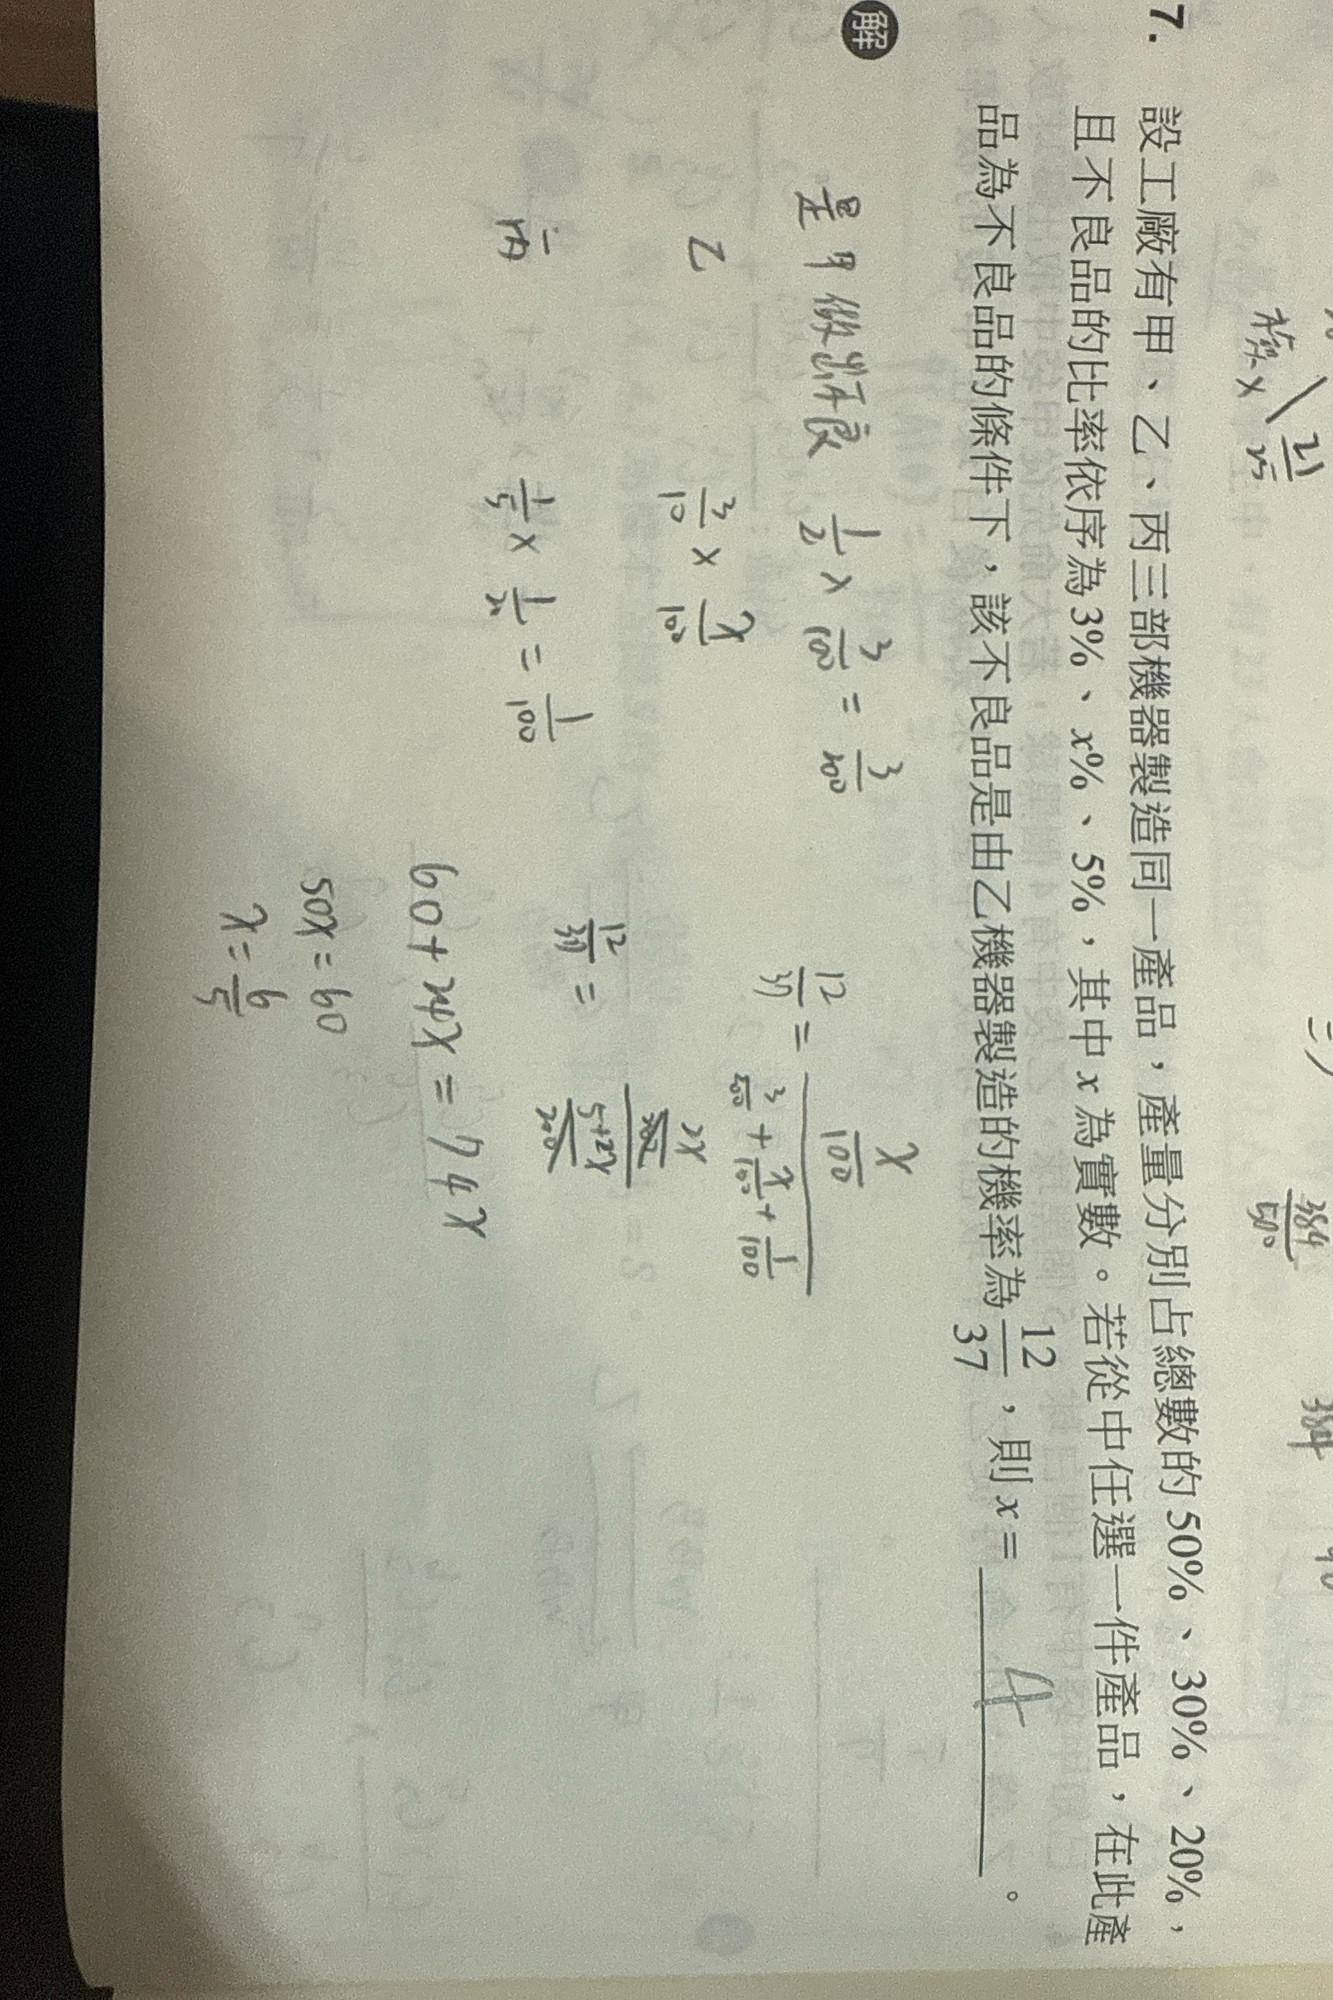 族群 × 21/25
384/50
384
7. 設工廠有甲、乙、丙三部機器製造同一產品，產量分別占總數的50%、30%、20%，
且不良品的比率依序為3%、x%、5%，其中x為實數。若從中任選一件產品，在此產
品為不良品的條件下，該不良品是由乙機器製造的機率為12/37，則x= 4 。
解
是甲做出不良 1/2 × 3/100 = 3/200
乙 3/10 × x/100
丙 1/5 × 1/20 = 1/100
12/37 = (x/100)/(3/200 + x/100 + 1/100)
12/37 = 2x/(5+2x)
60+24x = 74x
50x = 60
x = 6/5